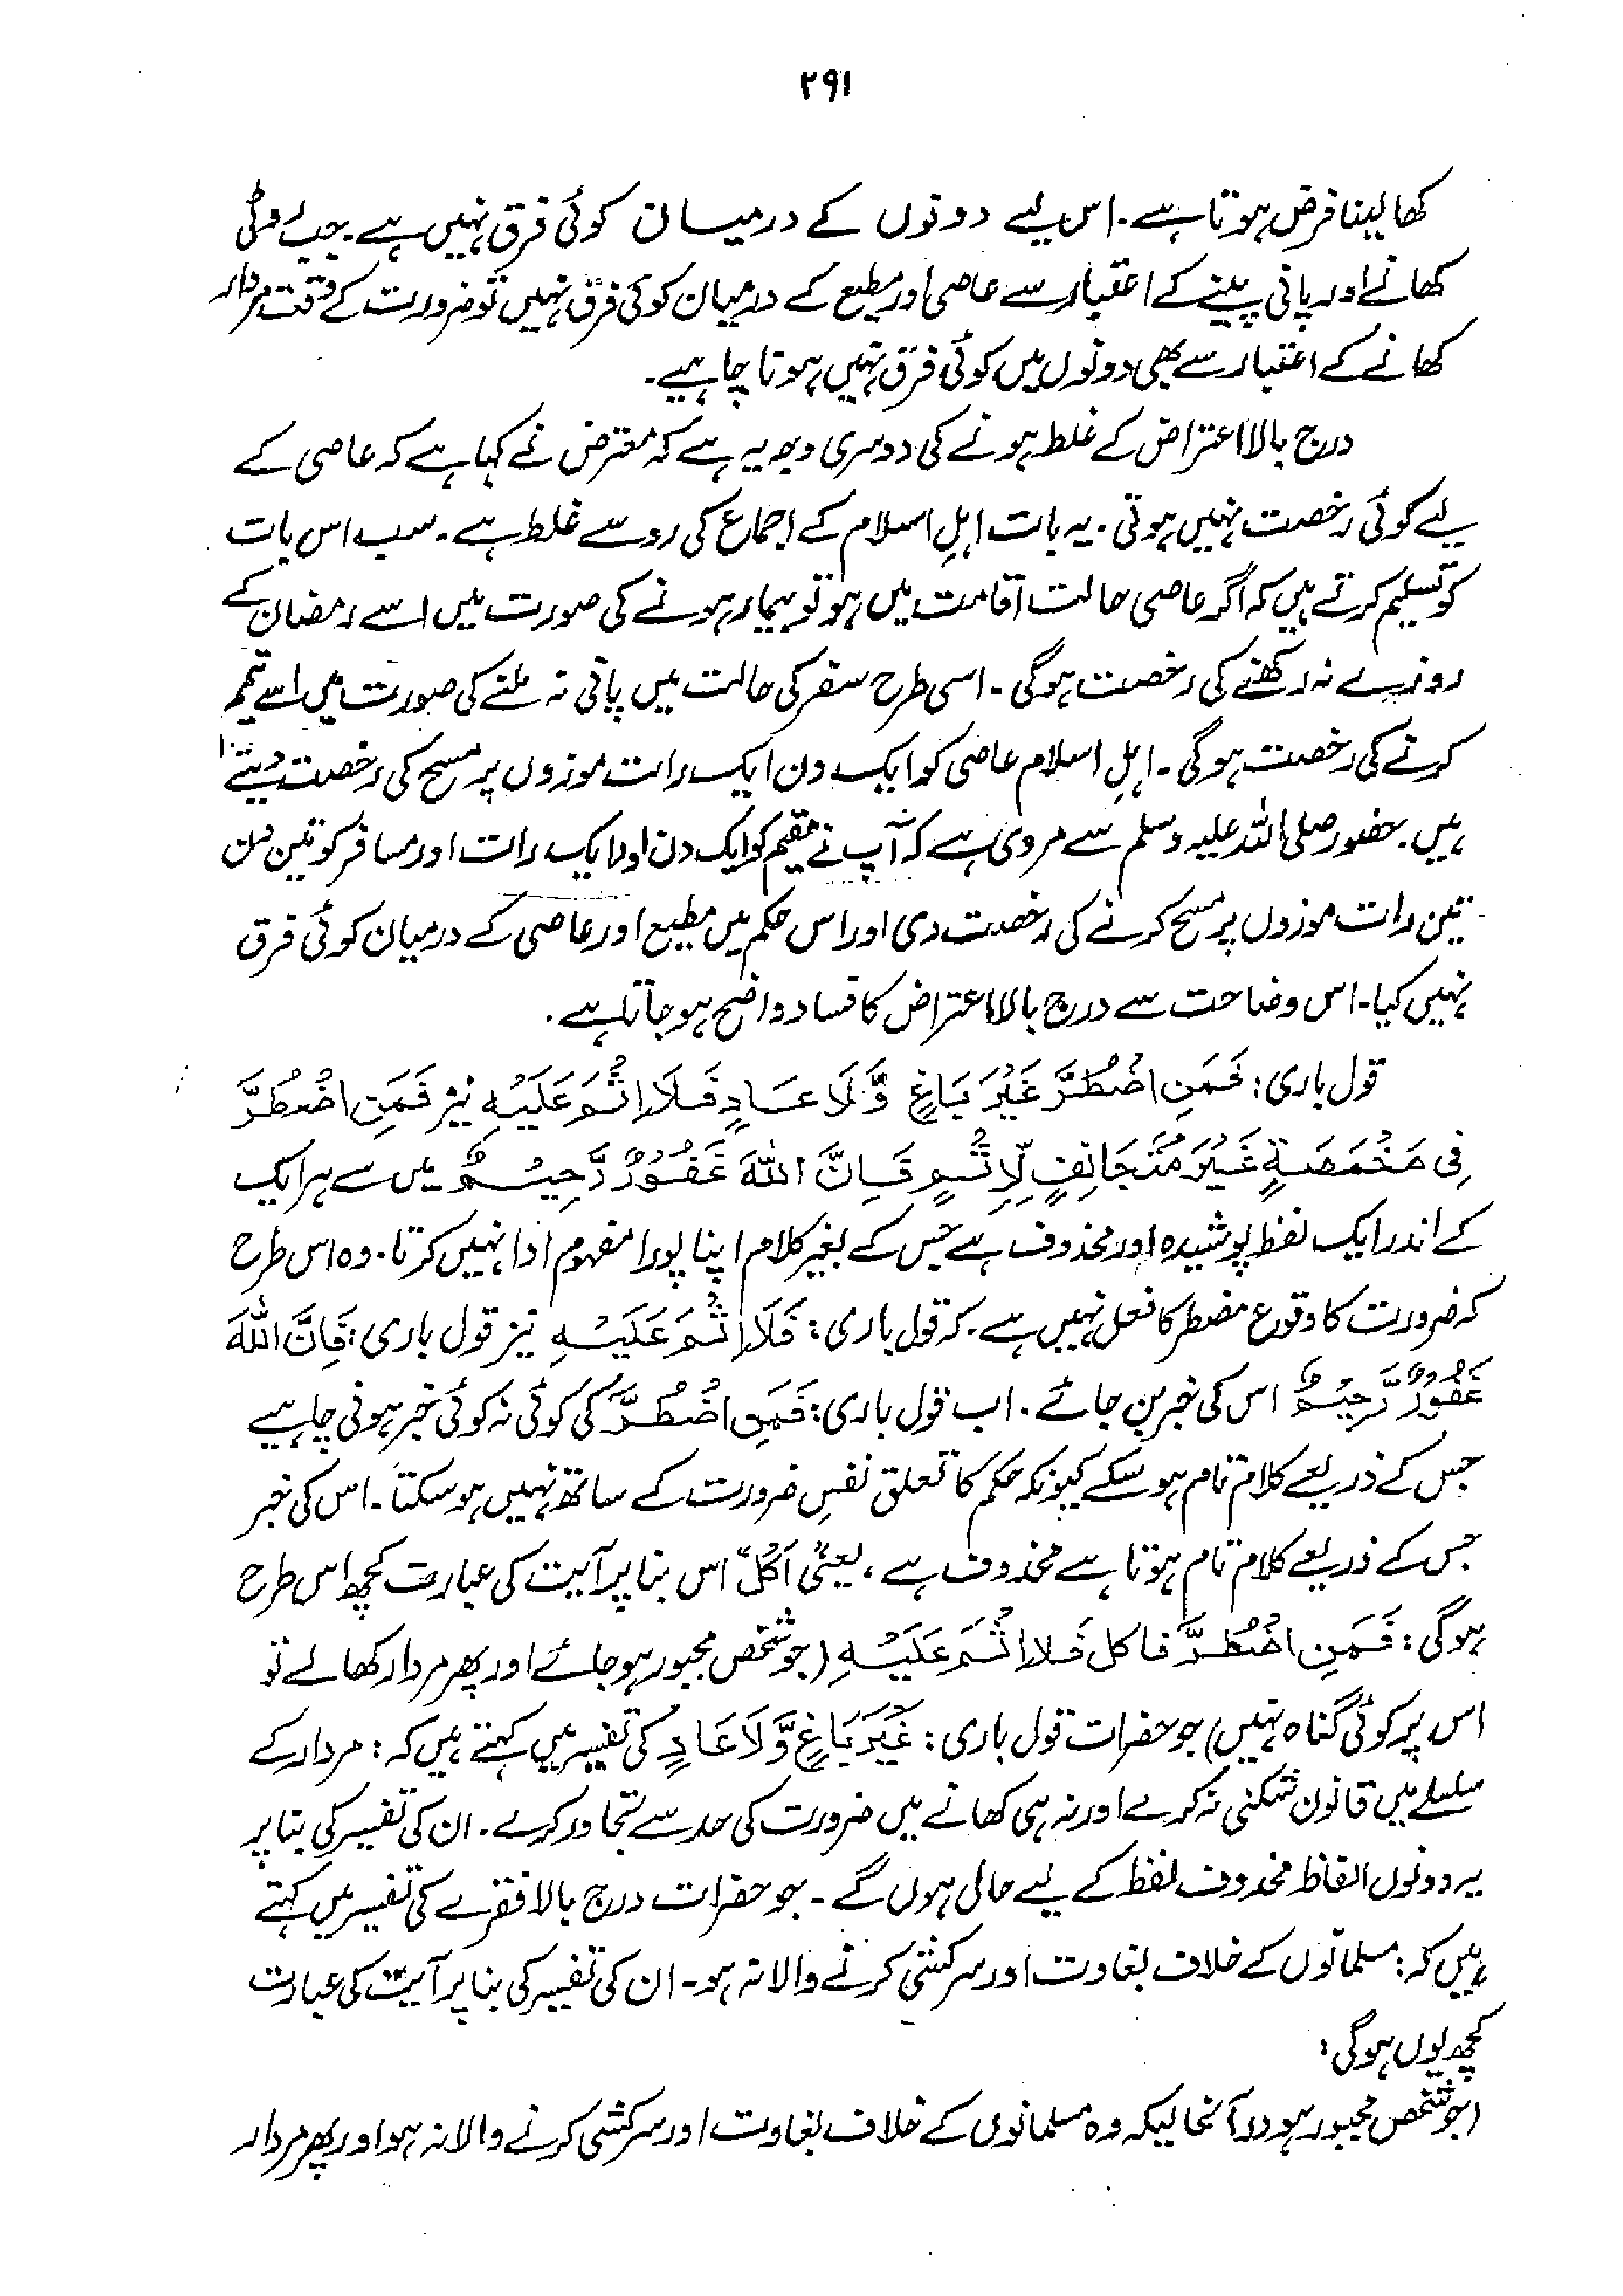 ۲۹۱
کھا لینا فرض ہوتا ہے۔ اس لیے دونوں کے درمیان کوئی فرق نہیں ہے۔ جب روٹی
کھانے اور پانی پینے کے اعتبار سے عاصی اور مطیع کے درمیان کوئی فرق نہیں تو ضرورت کے وقت مردار
کھانے کے اعتبار سے بھی دونوں میں کوئی فرق نہیں ہونا چاہیے۔
درج بالا اعتراض کے غلط ہونے کی دوسری وجہ یہ ہے کہ معترض نے کہا ہے کہ عاصی کے
لیے کوئی رخصت نہیں ہوتی۔ یہ بات اہلِ اسلام کے اجماع کی رو سے غلط ہے۔ سب اس بات
کو تسلیم کرتے ہیں کہ اگر عاصی حالت اقامت میں ہو تو بیمار ہونے کی صورت میں اسے رمضان کے
روزے نہ رکھنے کی رخصت ہوگی۔ اسی طرح سفر کی حالت میں پانی نہ ملنے کی صورت میں اسے تیمم
کرنے کی رخصت ہوگی۔ اہلِ اسلام عاصی کو ایک دن ایک رات موزوں پر مسح کی رخصت دیتے
ہیں۔ حضور صلی اللہ علیہ وسلم سے مروی ہے کہ آپ نے مقیم کو ایک دن اور ایک رات اور مسافر کو تین دن
تین رات موزوں پر مسح کرنے کی رخصت دی اور اس حکم میں مطیع اور عاصی کے درمیان کوئی فرق
نہیں کیا۔ اس وضاحت سے درج بالا اعتراض کا فساد واضح ہو جاتا ہے۔
قول باری: فَمَنِ اضْطُرَّ غَيْرَ بَاغٍ وَّلَا عَادٍ فَلَا إِثْمَ عَلَيْهِ نیز فَمَنِ اضْطُرَّ
فِي مَخْمَصَةٍ غَيْرَ مُتَجَانِفٍ لِّإِثْمٍ فَإِنَّ اللهَ غَفُورٌ رَّحِيمٌ میں سے ہر ایک
کے اندر ایک لفظ پوشیدہ اور محذوف ہے جس کے بغیر کلام اپنا پورا مفہوم ادا نہیں کرتا۔ وہ اس طرح
کہ ضرورت کا وقوع مضطر کا فعل نہیں ہے۔ کہ قول باری: فَلَا إِثْمَ عَلَيْهِ نیز قول باری: فَإِنَّ اللهَ
غَفُورٌ رَّحِيمٌ اس کی خبر بن جائے۔ اب قول باری: فَمَنِ اضْطُرَّ کی کوئی نہ کوئی خبر ہونی چاہیے
جس کے ذریعے کلام تام ہو سکے کیونکہ حکم کا تعلق نفسِ ضرورت کے ساتھ نہیں ہو سکتا۔ اس کی خبر
جس کے ذریعے کلام تام ہوتا ہے محذوف ہے، یعنی "اَکَلَ" اس بنا پر آیت کی عبارت کچھ اس طرح
ہوگی: فَمَنِ اضْطُرَّ فاکل فَلَا إِثْمَ عَلَيْهِ (جو شخص مجبور ہو جائے اور پھر مردار کھا لے تو
اس پر کوئی گناہ نہیں) جو حضرات قول باری: غَيْرَ بَاغٍ وَّلَا عَادٍ کی تفسیر میں کہتے ہیں کہ: مردار کے
سلسلے میں قانون شکنی نہ کرے اور نہ ہی کھانے میں ضرورت کی حد سے تجاوز کرے۔ ان کی تفسیر کی بنا پر
یہ دونوں الفاظ محذوف لفظ کے لیے حال ہوں گے۔ جو حضرات درج بالا فقرے کی تفسیر میں کہتے
ہیں کہ: مسلمانوں کے خلاف بغاوت اور سرکشی کرنے والا نہ ہو۔ ان کی تفسیر کی بنا پر آیت کی عبارت
کچھ یوں ہوگی:
(جو شخص مجبور ہو درآنحالیکہ وہ مسلمانوں کے خلاف بغاوت اور سرکشی کرنے والا نہ ہو اور پھر مردار